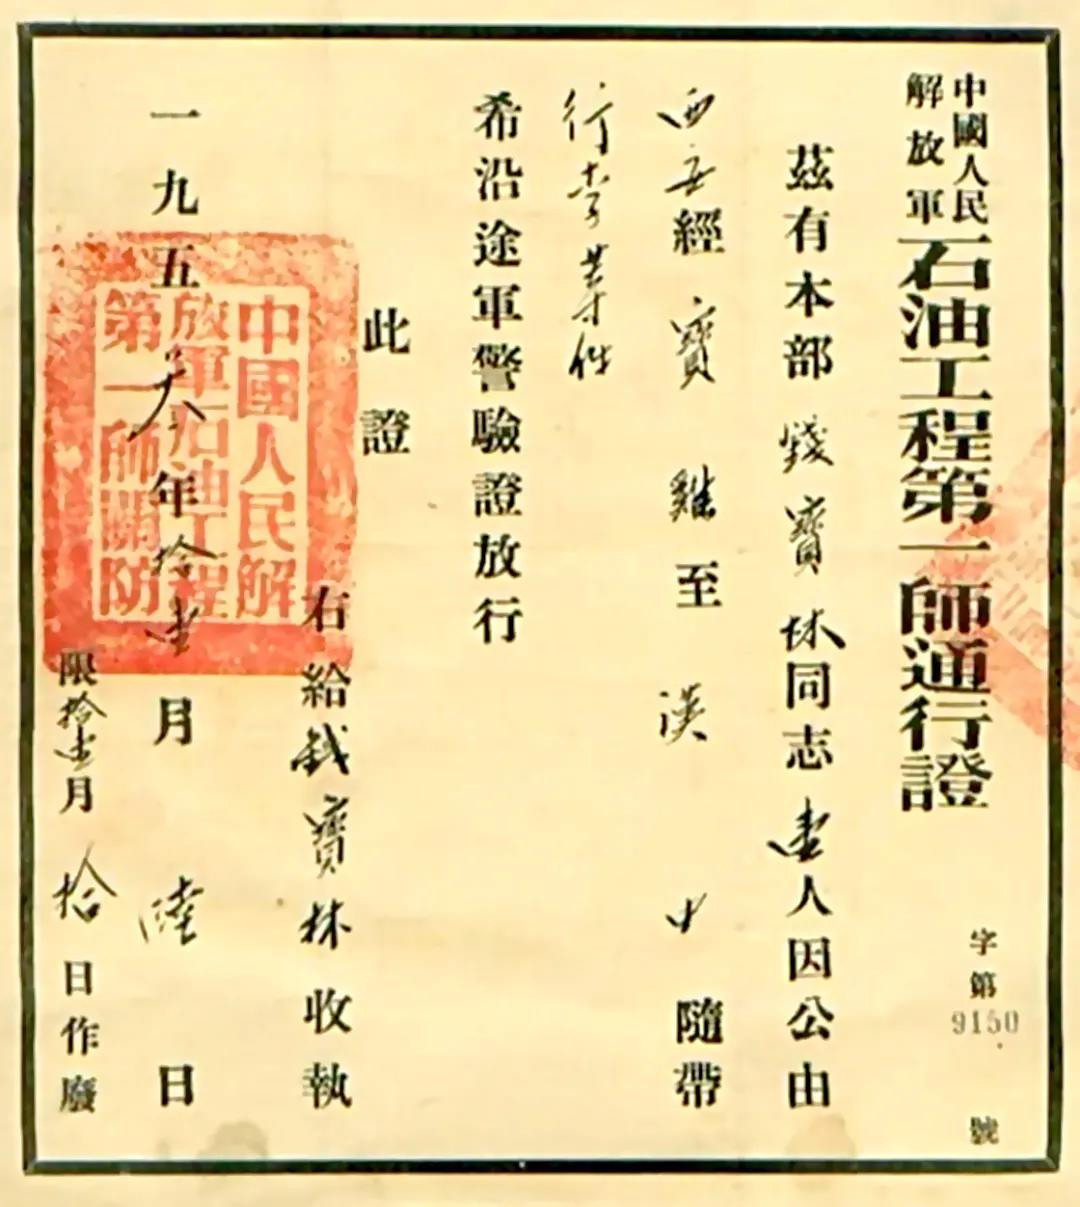 中國人民解放軍石油工程第一師通行證
字第9150號
茲有本部錢寶林同志壹人因公由
西安經寶雞至漢中隨帶
行李業件
希沿途軍警驗證放行
此證
右給錢寶林收執
一九五六年拾壹月陸日
限拾壹月拾日作廢
中國人民解
放軍石油工程
第一師關防